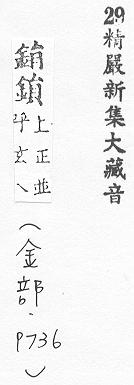 29精嚴新集大藏音
鋗鎖
上正並
乎玄
（金部．P736）